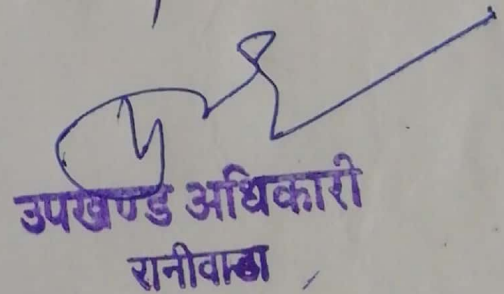 उपखण्ड अधिकारी
रानीवाडा